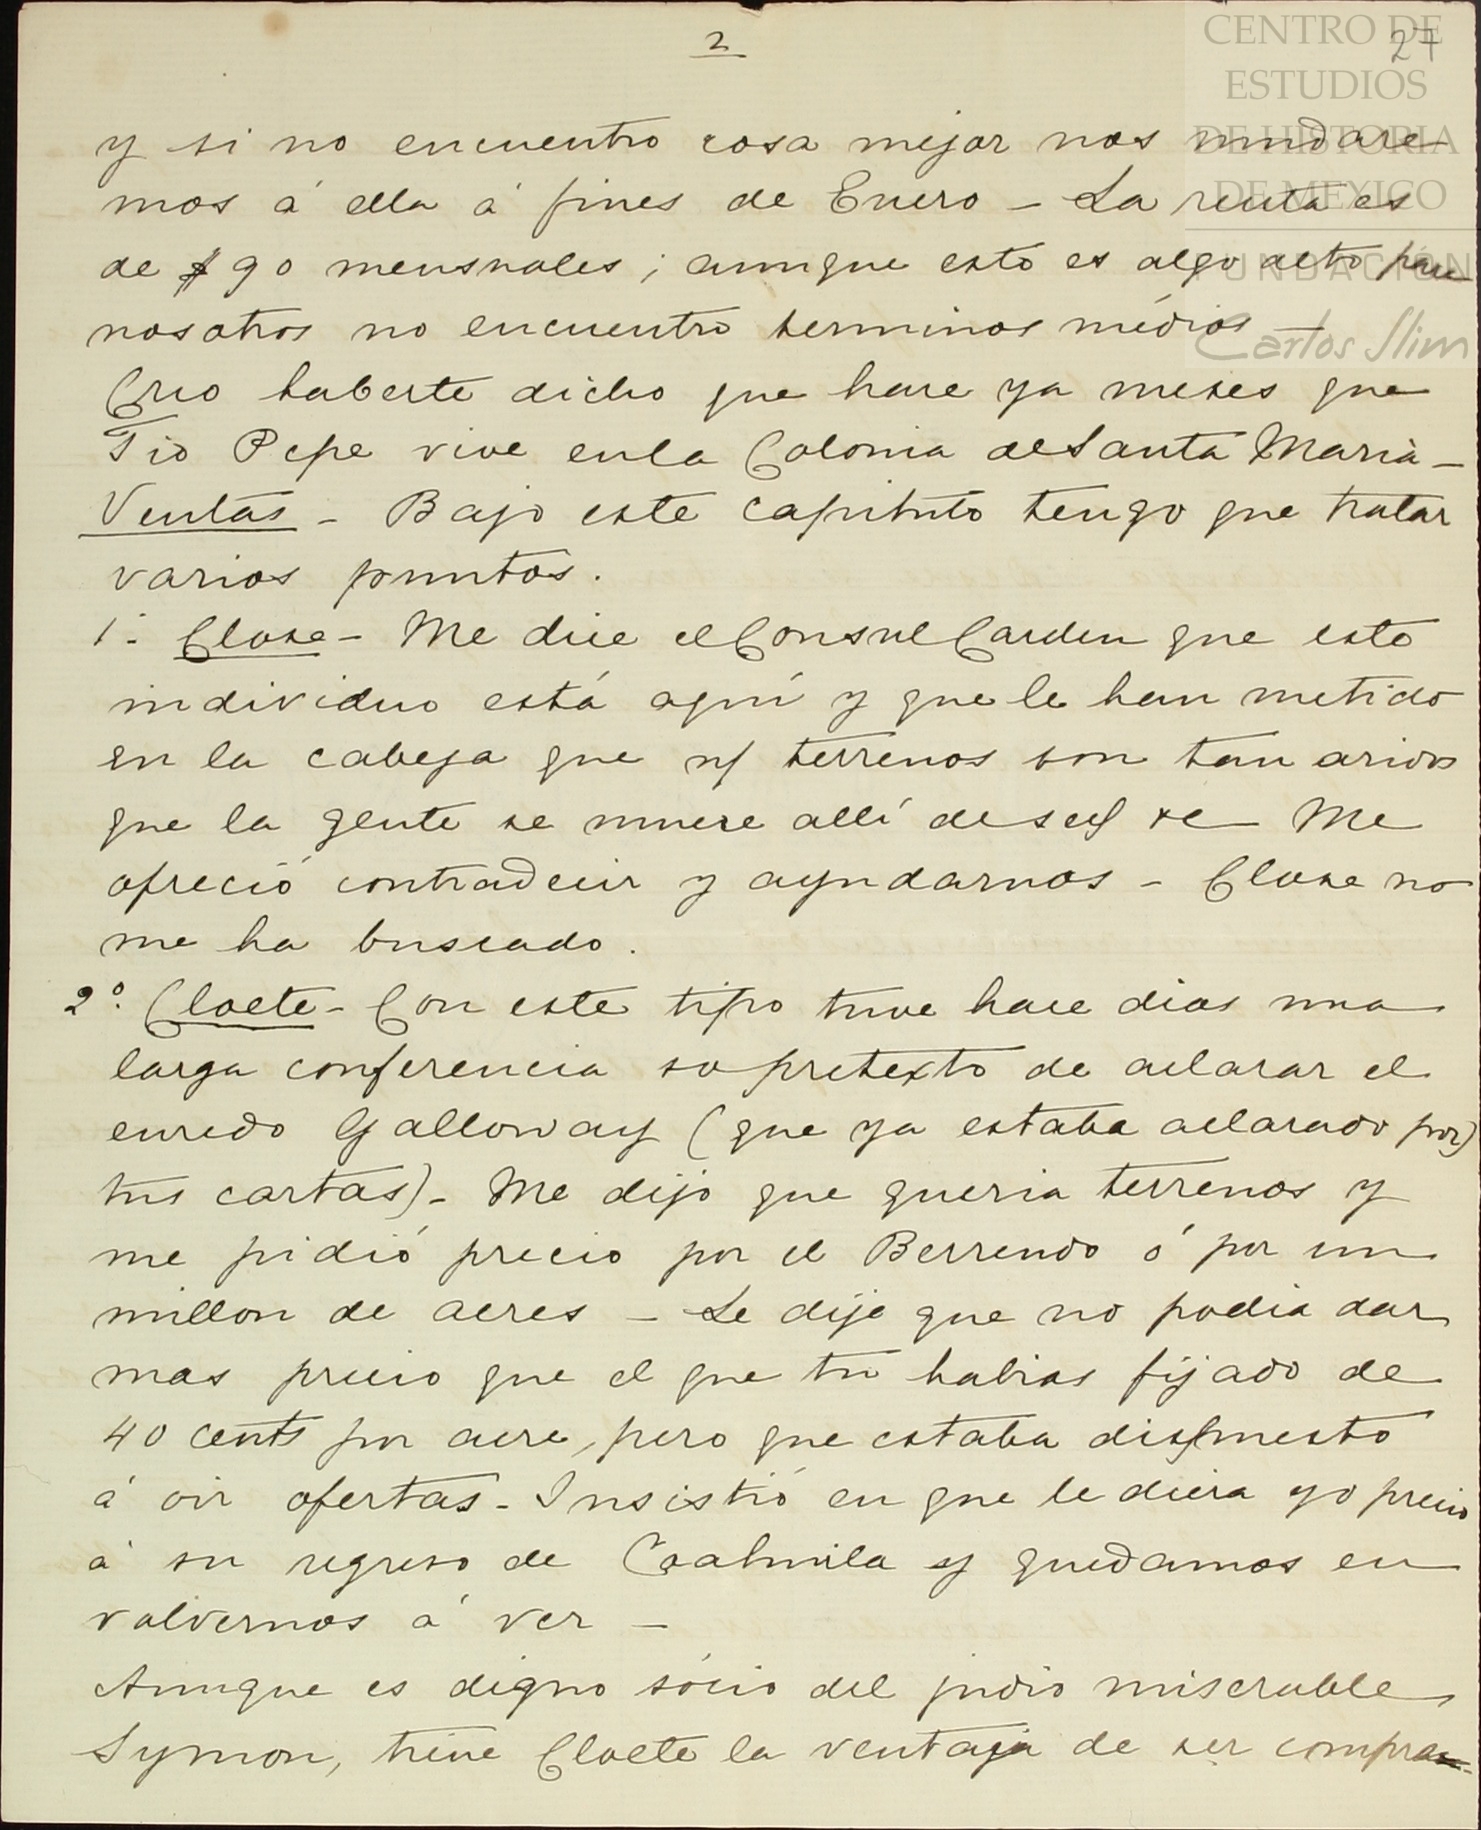 2
27
CENTRO DE
ESTUDIOS
DE HISTORIA
DE MEXICO
FUNDACION
Carlos Slim
y si no encuentro cosa mejor nos mudare-
mos á ella á fines de Enero - La renta es
de $90 mensuales; aunque esto es algo alto para
nosotros no encuentro terminos médios -
Creo haberte dicho que hace ya meses que
Tio Pepe vive en la Colonia de Santa Maria -
Ventas - Bajo este capitulo tengo que tratar
varios puntos.
1.- Close - Me dice el Consul Carden que este
individuo está aquí y que le han metido
en la cabeza que n/ terrenos son tan aridos
que la gente se muere allí de sed &c - Me
ofreció contradecir y ayudarnos - Close no
me ha buscado.
2º. Cloete - Con este tipo tuve hace dias una
larga conferencia so pretexto de aclarar el
enredo Galloway (que ya estaba aclarado por)
tus cartas) - Me dijo que queria terrenos y
me pidió precio por el Berrendo ó por un
millon de acres - Le dije que no podia dar
mas precio que el que tu habias fijado de
40 cents por acre, pero que estaba dispuesto
á oir ofertas - Insistió en que le diera yo precio
á su regreso de Coahuila y quedamos en
volvernos á ver -
Aunque es digno sócio del judio miserable
Symon, tiene Cloete la ventaja de ser compra-